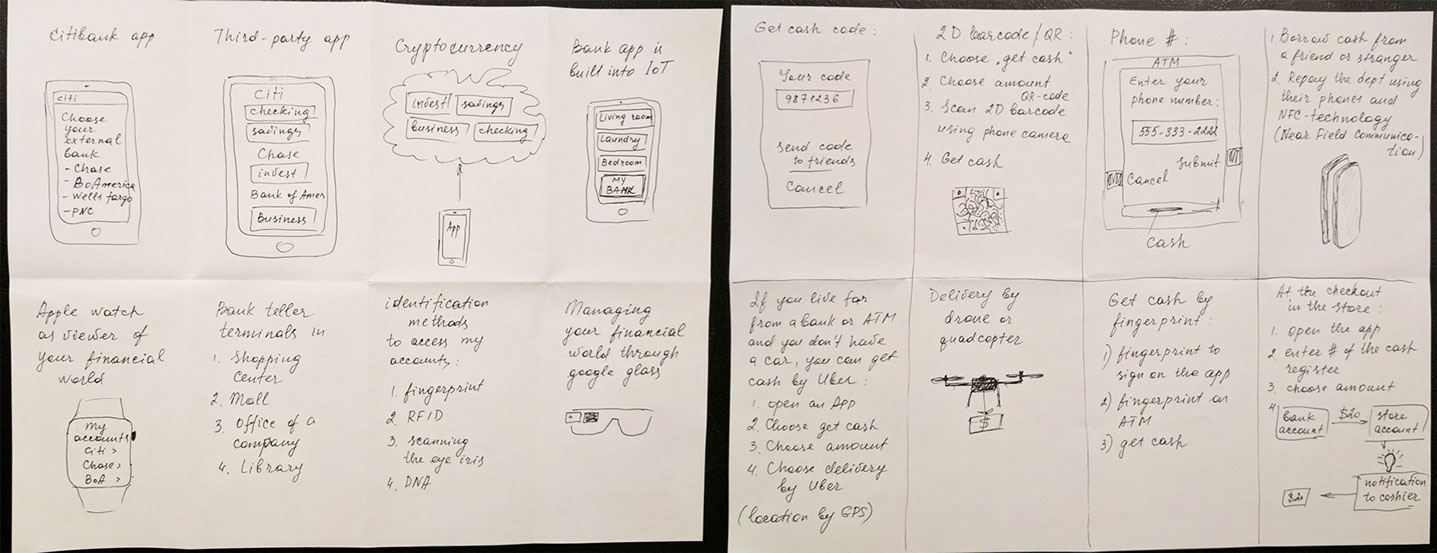 Citibank app
citi
Choose
your
external
bank
- Chase
- BoAmerica
- Wells fargo
- PNC
Third-party app
Citi
checking
savings
Chase
invest
Bank of Amer
Business
Cryptocurrency
invest
savings
business
checking
App
Bank app is
built into IoT
Living room
Laundry
Bedroom
MY
BANK
Apple watch
as viewer of
your financial
world
My
accounts
Citi >
Chase >
BoA >
Bank teller
terminals in
1. Shopping
Center
2. Mall
3. Office of a
company
4. Library
identification
methods
to access my
accounts:
1. fingerprint
2. RFID
3. scanning
the eye iris
4. DNA
Managing
your financial
world through
google glass
Get cash code:
Your code
9871236
Send code
to friends
Cancel
2D barcode/QR:
1. Choose "get cash"
2. Choose amount
QR-code
3. Scan 2D barcode
using phone camera
4. Get cash
Phone #:
ATM
Enter your
phone number:
555-333-2222
Submit
Cancel
Cash
1. Borrow cash from
a friend or stranger
2. Repay the dept using
their phones and
NFC-technology
(Near Field Communica-
tion)
If you live far
from a bank or ATM
and you don't have
a car, you can get
cash by Uber:
1. open an App
2. Choose get cash
3. Choose amount
4. Choose delivery
by Uber
(location by GPS)
Delivery by
drone or
quadcopter
$
Get cash by
fingerprint:
1) fingerprint to
sign on the app
2) fingerprint on
ATM
3) get cash
At the checkout
in the store:
1. open the app
2. enter # of the cash
register
3. choose amount
4.
bank
account
$20
store
account
notification
to cashier
$20